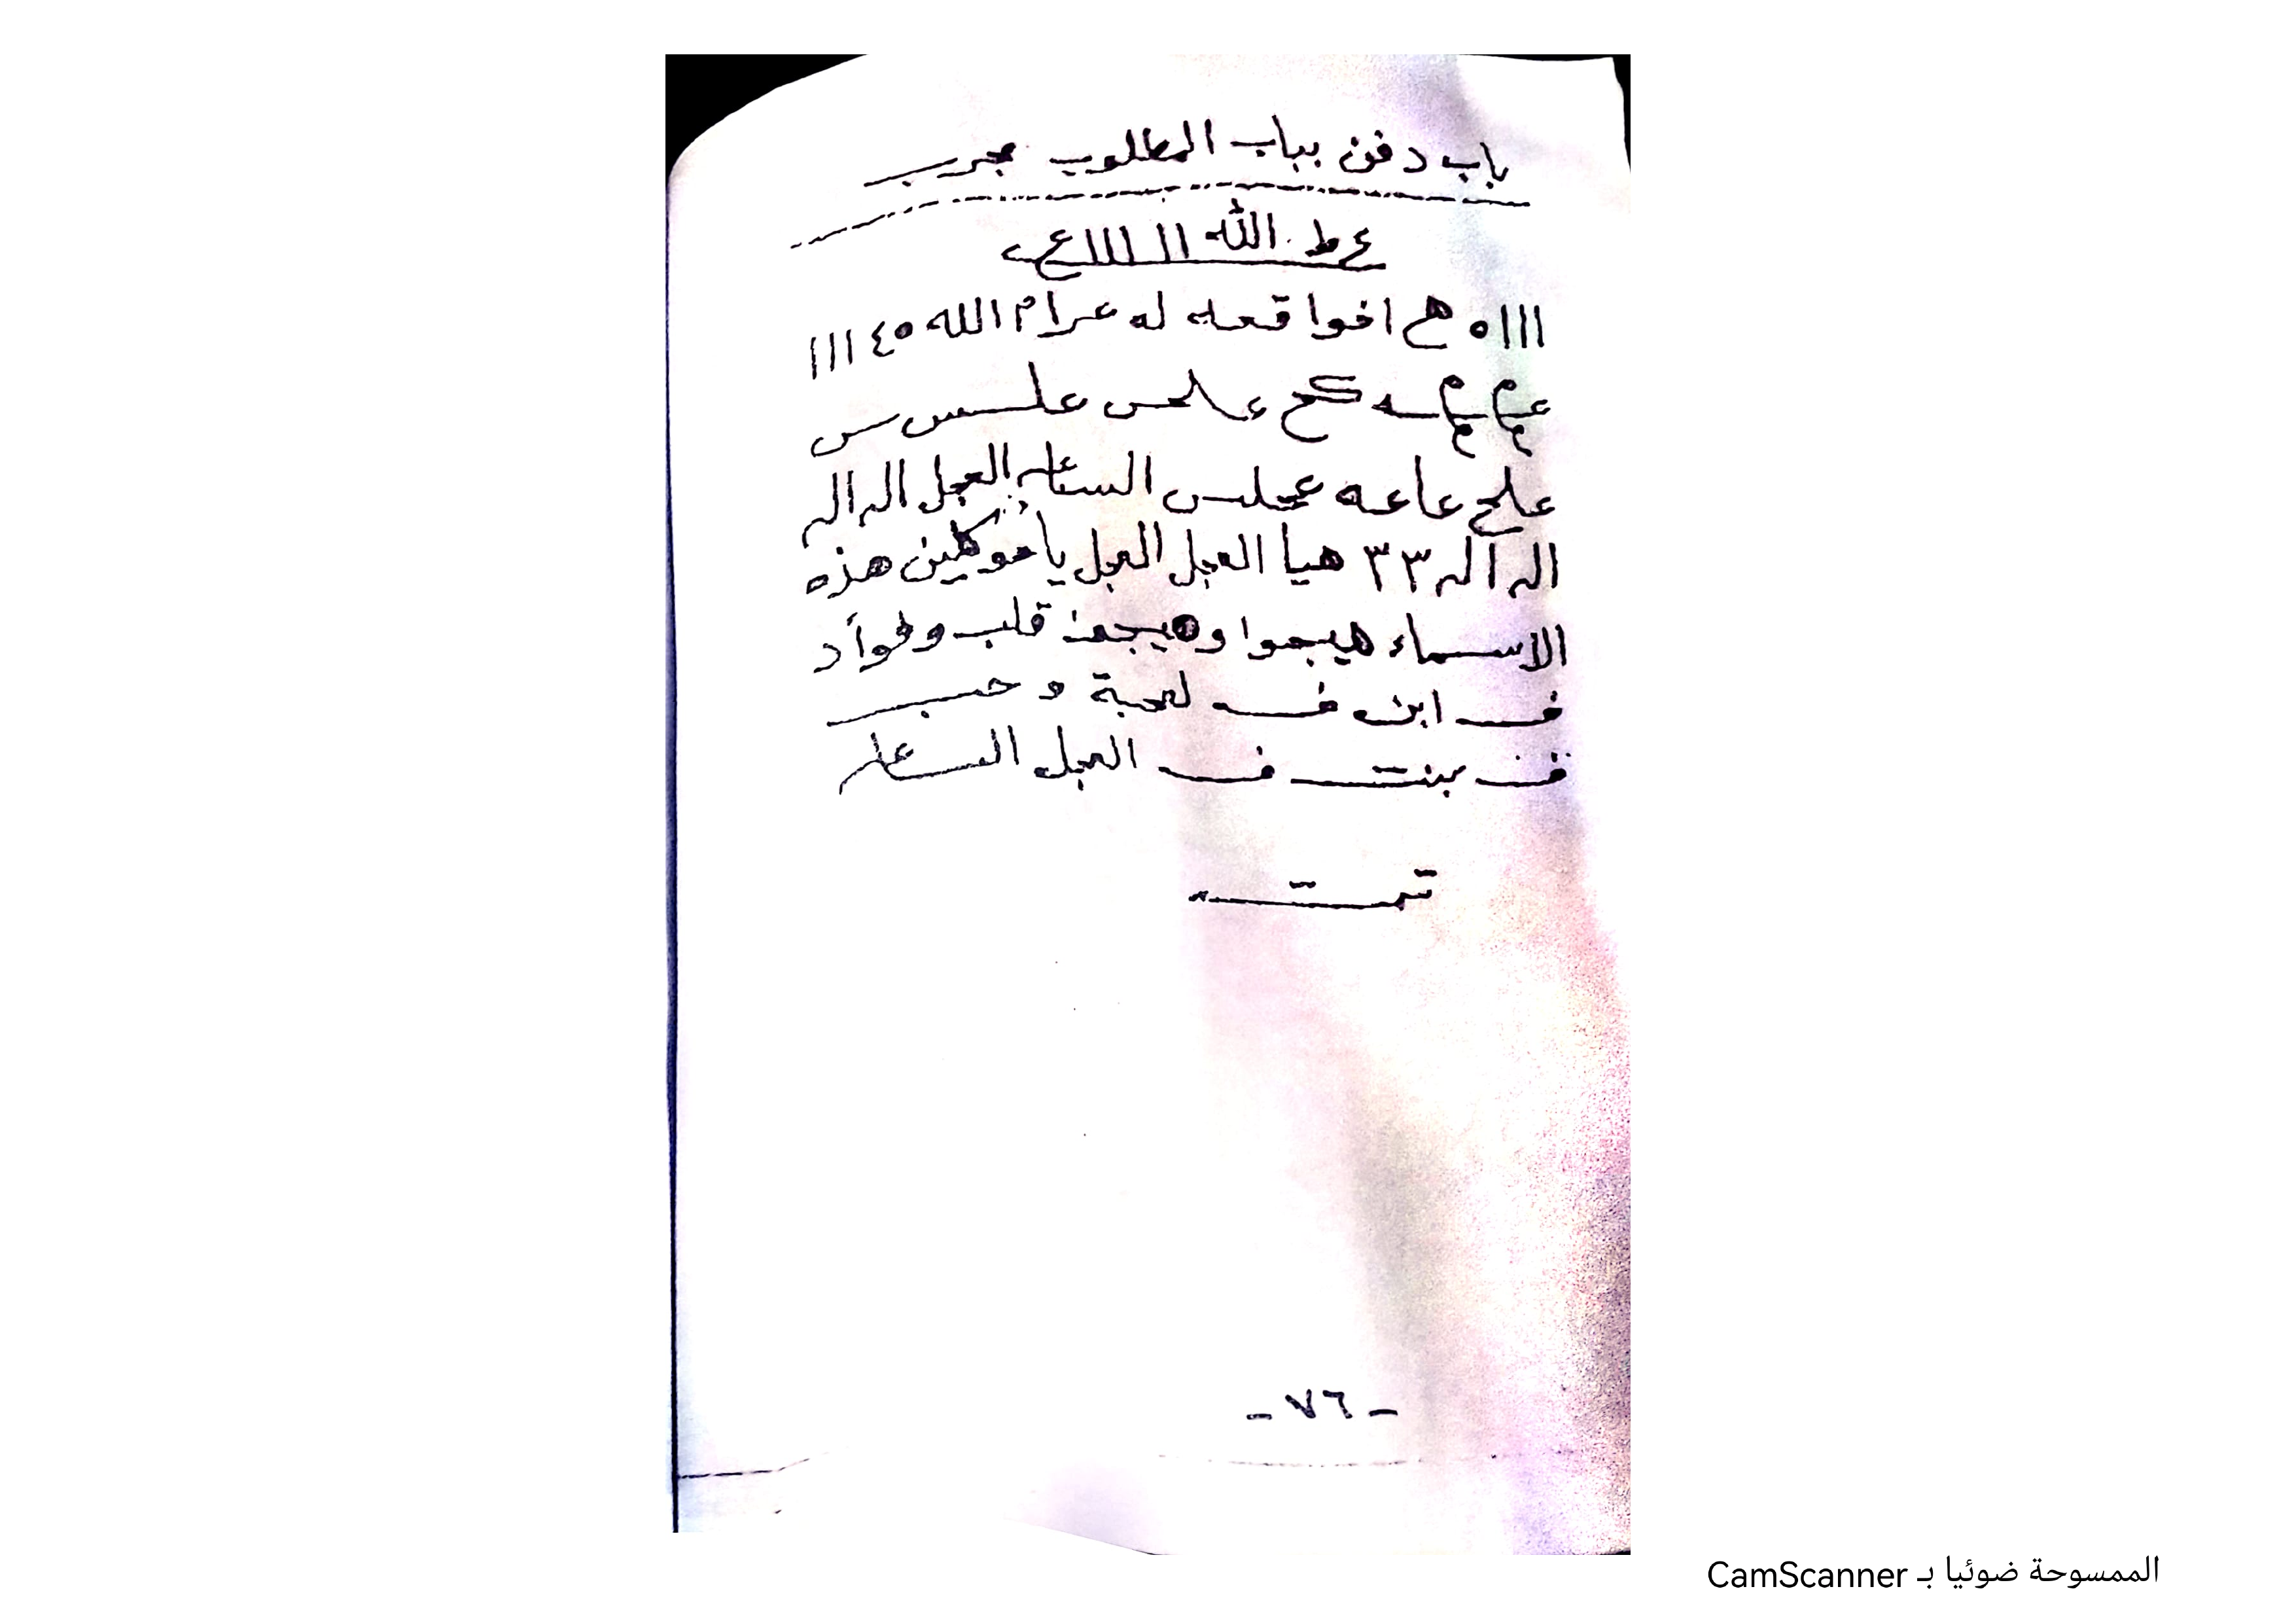 باب دفن بباب المطلوب مجرب
عط الله اا ااااع
ااا ه هج اخوا قعه له عرام الله ٤٥ ااا
كح علحس علسس س
علج عاعه عجلس الساعه العجل اله اله
اله اله ٣٣ هيا العجل العجل يا موكلين هذه
الاسماء هيجوا و قلب وفوأد
ف ابن ف لمحبة و حب
ف بنت ف العجل الساعه
تمت
- ٧٦ -
الممسوحة ضوئيا بـ CamScanner